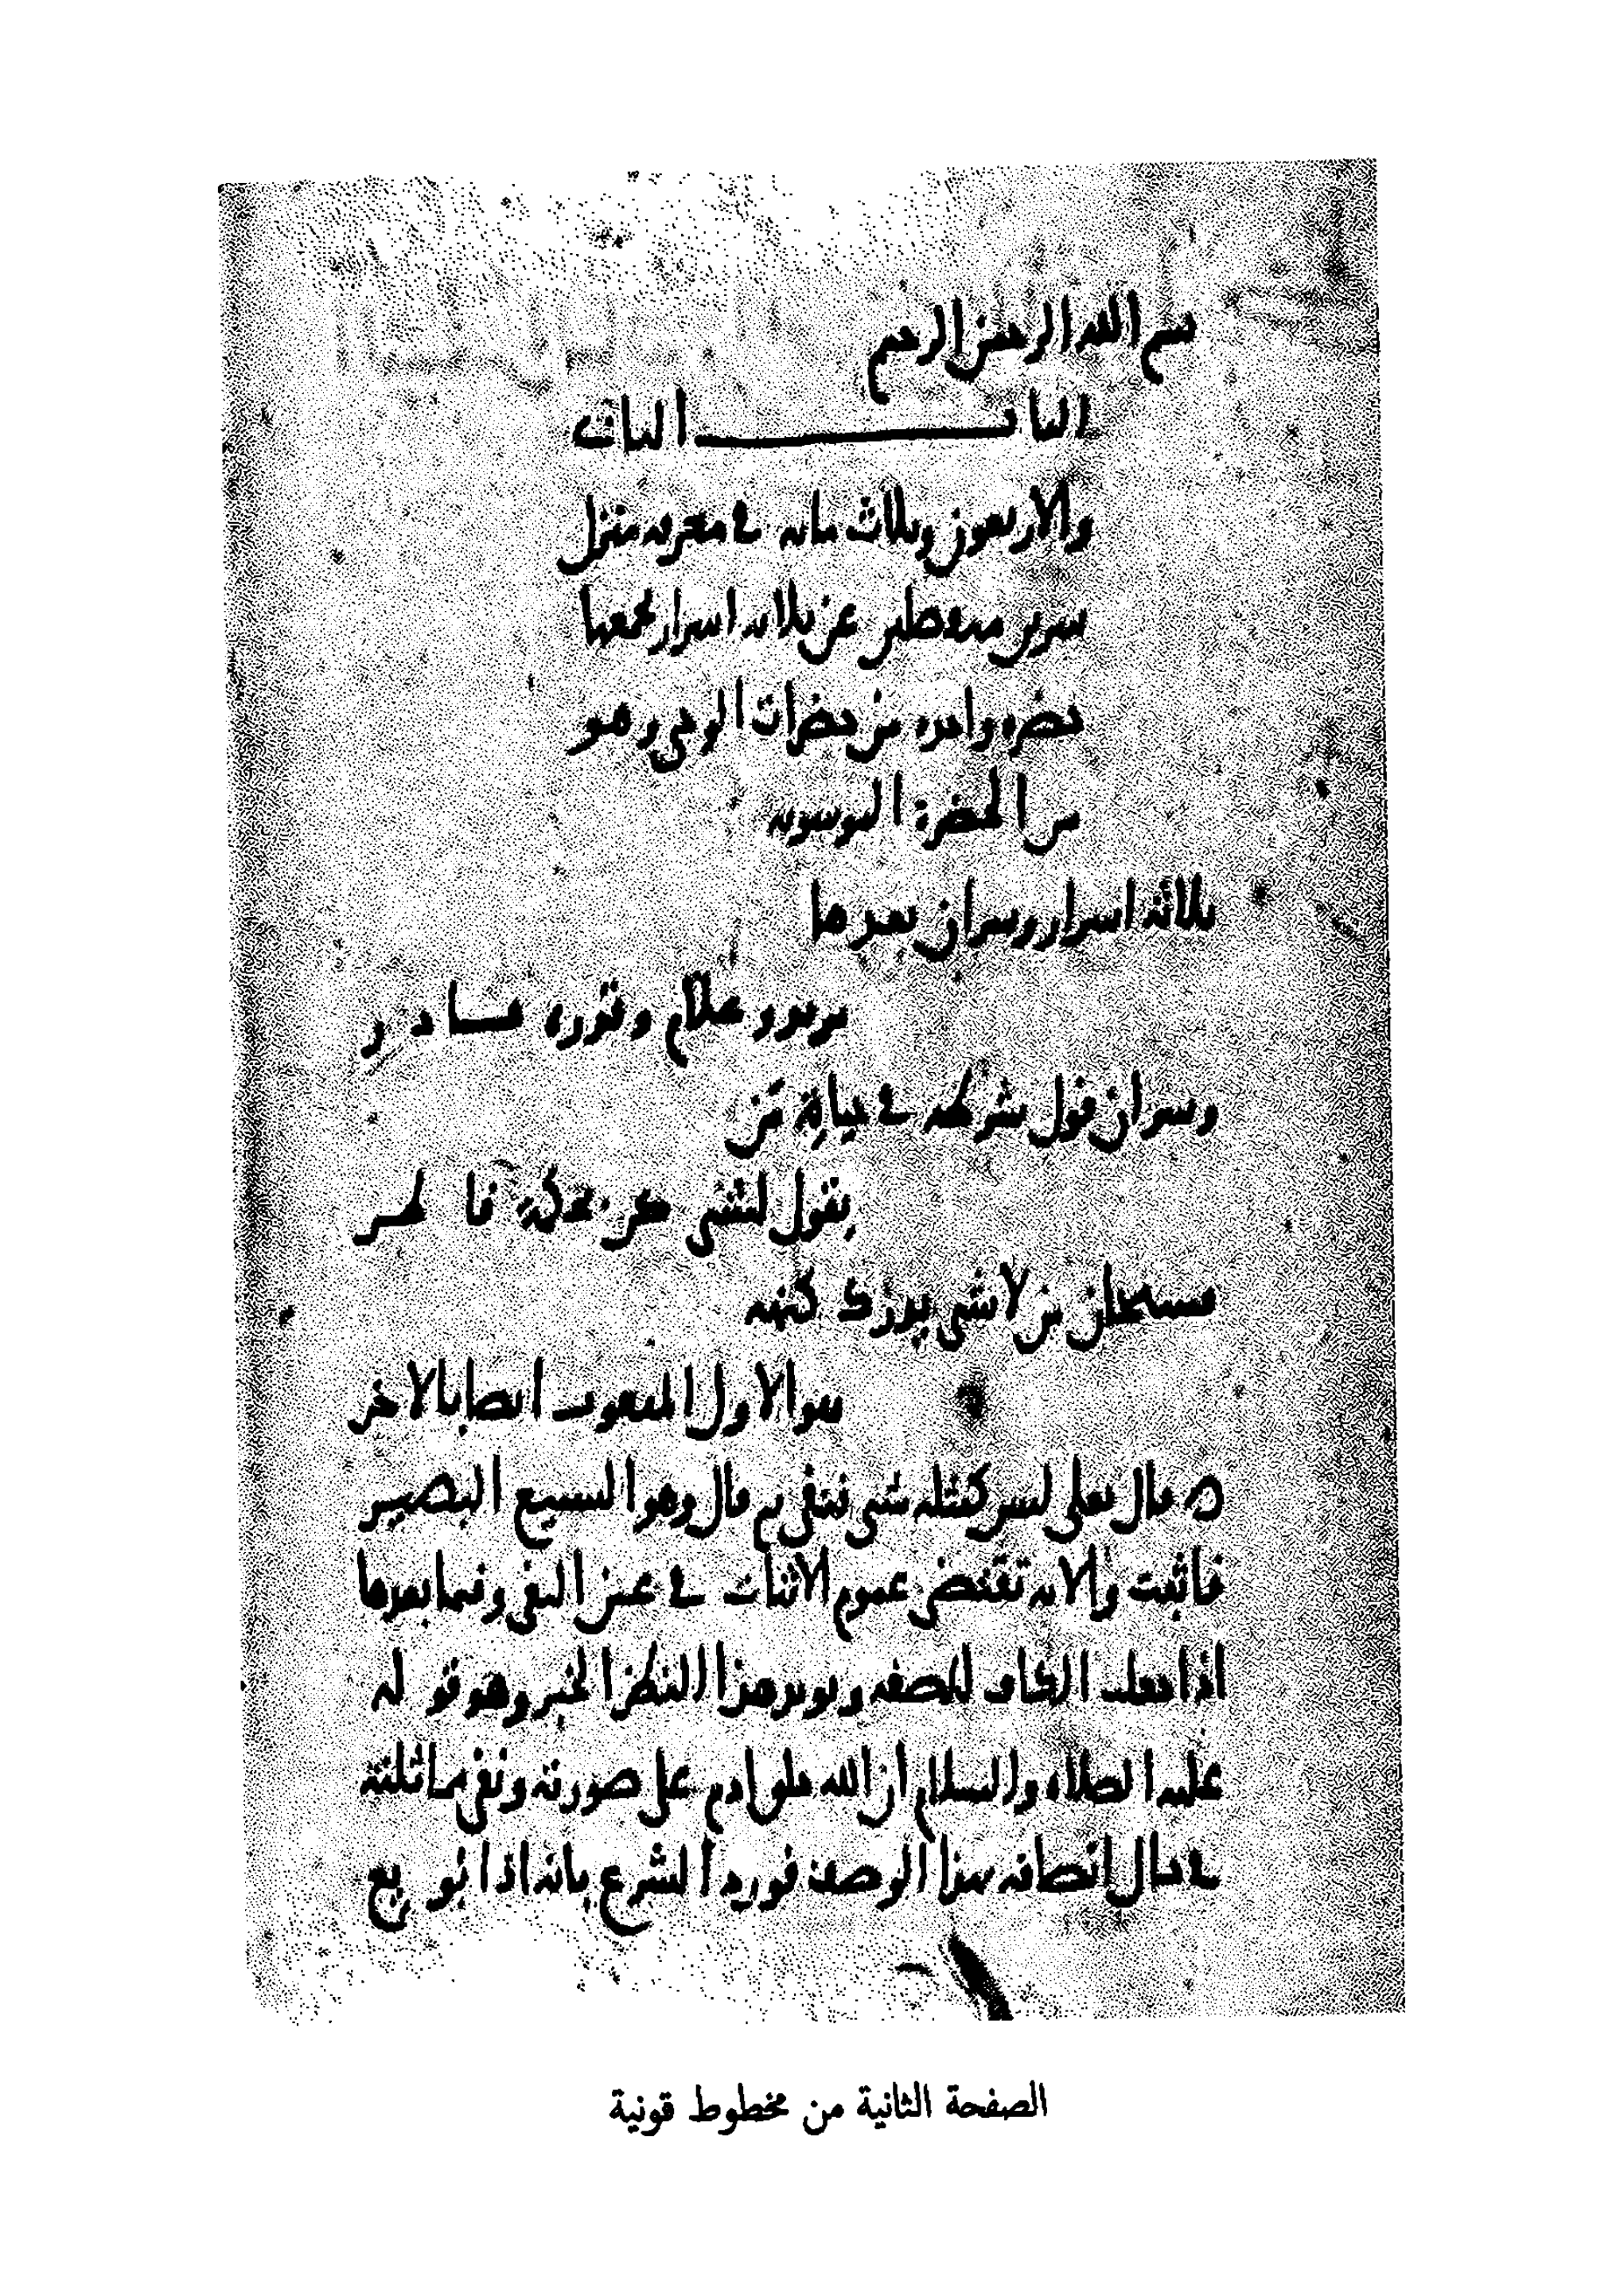 بسم الله الرحمن الرحيم
الباب الثاني
والاربعون وثلاث مايه في معرفه منزل
سرين منفصلين عن ثلاثه اسرار يجمعها
حضره واحده من حضرات الوحي وهو
من الحضرة الموسويه
ثلاثة اسرار وسران بعدها
مريد وعلام وقدره قادر
وسران قول شرطه في حياة من
يقول لشي كن بحكمة فاطر
فسبحان من لا شي يدرك كنهه
هو الاول المنعوت ايضا بالاخر
قال تعلى ليس كمثله شي فنفى ثم قال وهو السميع البصير
فاثبت والايه تقتضى عموم الاثبات في عين النفي وفيما بعدها
اذا جعلت الكاف للصفه ويويد هذا النظر الخبر وهو قوله
عليه الصلاه والسلام ان الله خلق ادم على صورته ونفى مماثلته
في حال اتصافه بهذا الوصف فورد الشرع بانه اذا بويع
الصفحة الثانية من مخطوط قونية